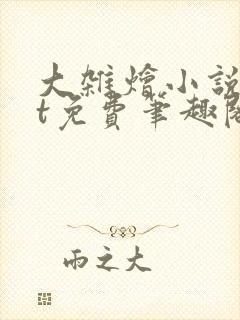 大雑燴小說
t免費筆趣閣
雨之大